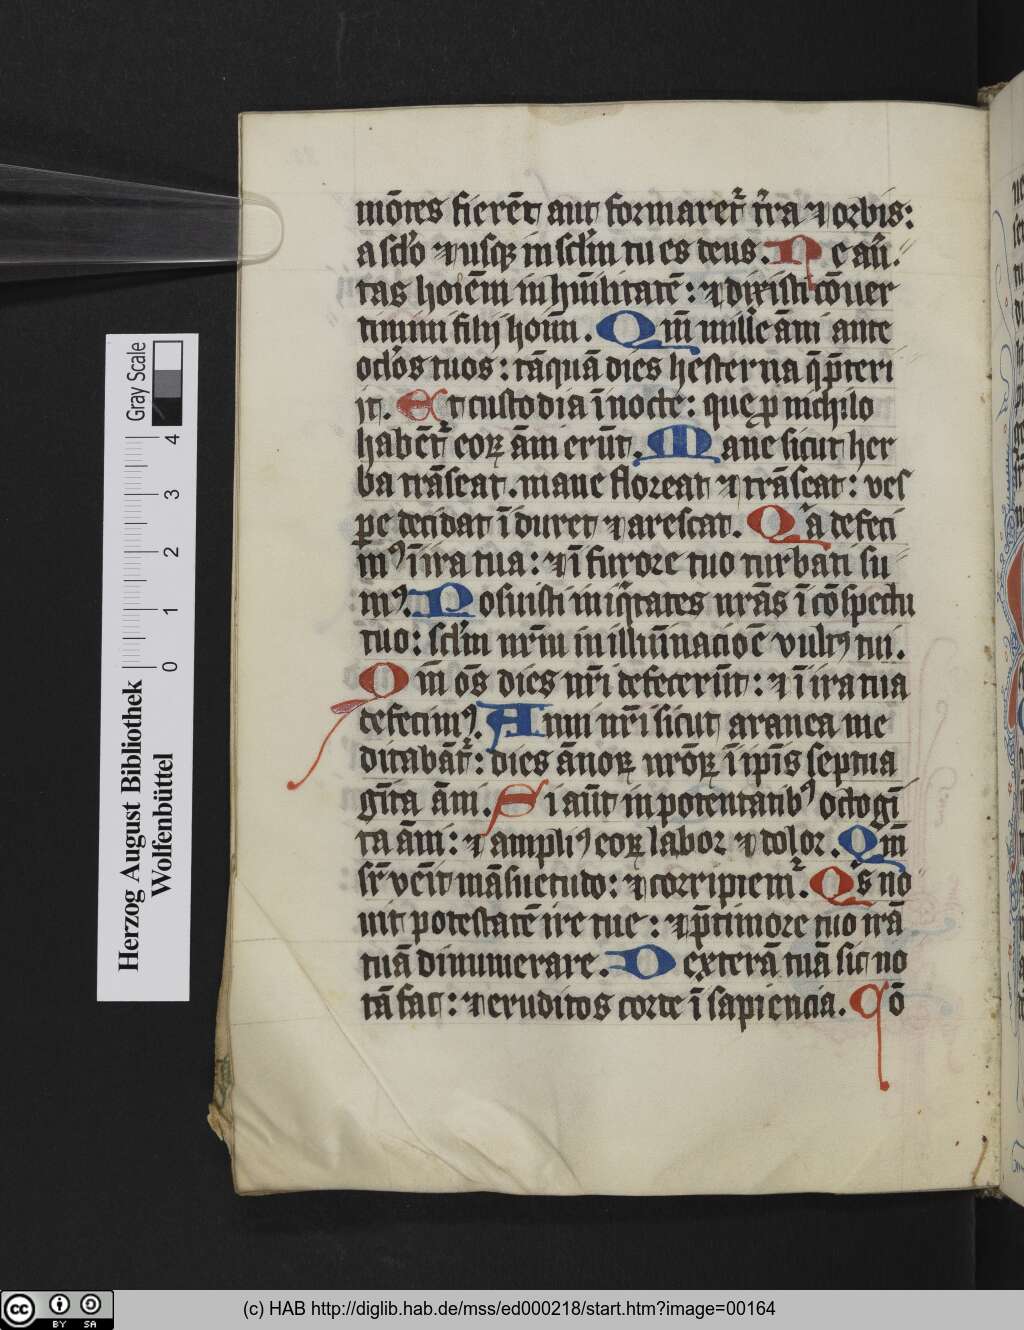 mōtes fierēt aut formaretᷣ tr̃ra ⁊ orbis:
a sclo ⁊ usqꝫ in sclm tu es deus. Ne aū⸗
tas hoiēm in hūilitatē: ⁊ dixisti cōuer
timini filij hoim̄. Qm̄ mille āni ante
oclos tuos: tāquā dies hesterna q̄ p̄teri
it. Et custodia ī nocte: quę p nichilo
habēt̄ᷣ eoꝝ āni erūt. Mane sicut her
ba trāseat. mane floreat ⁊ trāseat: ves
ꝑe decidat ī duret ⁊ arescat. Qa defeci
mꝰ ī ira tua: ⁊ ī furore tuo turbati su⸗
mꝰ. Posuisti iniq̄tates nrās ī cōspectu
tuo: sclm nrm̄ in illūīnacioē vultꝰ tui.
Qm̄ ōs dies nrī defecerūt: ⁊ ī ira tua
defecimꝰ. Anni nrī sicut aranea me
ditabāt̄ᷣ: dies ānoꝝ nrōꝝ ī ipīs septua
gīta āni. Si aūt in potentatibꝰ octogī
ta āni: ⁊ ampliꝰ eoꝝ labor ⁊ dolor. Qm̄
sr̄ vēit māsuetudo: ⁊ corripiemᷣ. Qs no
uit potestatē ire tue: ⁊ p̄ timore tuo irā
tuā dinumerare. Dexterā tuā sic no
tā fac: ⁊ eruditos corde ī sapiencia. Cō
Gray Scale
0 1 2 3 4
Herzog August Bibliothek
Wolfenbüttel
cc BY SA
(c) HAB http://diglib.hab.de/mss/ed000218/start.htm?image=00164